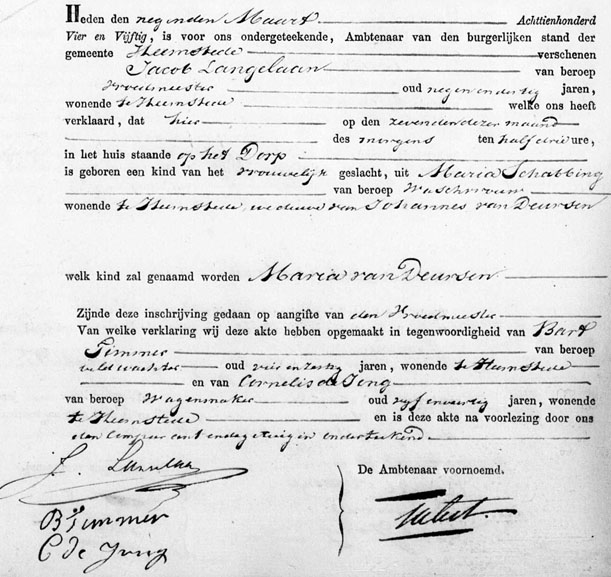 Heden den negenden Maart Achttienhonderd
Vier en Vijftig, is voor ons ondergeteekende, Ambtenaar van den burgerlijken stand der
gemeente Heemstede verschenen
Jacob Langelaan van beroep
Vroedmeester oud negen en dertig jaren,
wonende te Heemstede welke ons heeft
verklaard, dat hier op den zevenden dezer maand
des morgens ten half drie ure,
in het huis staande op het Dorp
is geboren een kind van het vrouwelijk geslacht, uit Maria Schabbing
van beroep Waschvrouw
wonende te Heemstede, weduwe van Johannes van Deursen
welk kind zal genaamd worden Maria van Deursen
Zijnde deze inschrijving gedaan op aangifte van den Vroedmeester
Van welke verklaring wij deze akte hebben opgemaakt in tegenwoordigheid van Bart
Timmer van beroep
veldwachter oud vier en zestig jaren, wonende te Heemstede
en van Cornelis de Jong
van beroep Wagenmaker oud vyf en veertig jaren, wonende
te Heemstede en is deze akte na voorlezing door ons
den comparant en de getuigen onderteekend
J.
De Ambtenaar voornoemd.
B Timmer
C de Jong